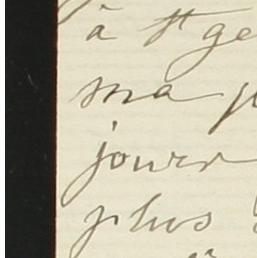 à St ge
ma p
jour
plus